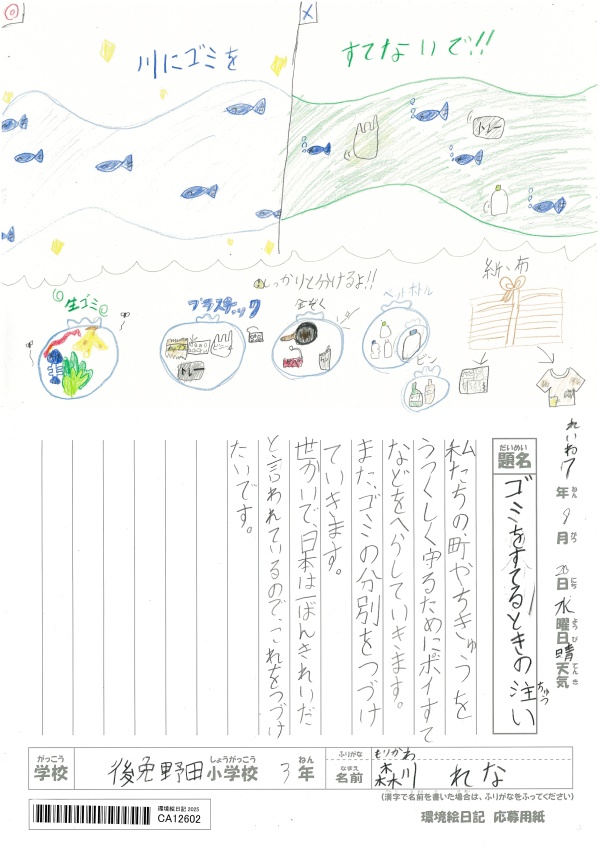 川にゴミを
すてないで!!
しっかりと分けるよ!!
生ゴミ
プラスチック
金ぞく
ペットボトル
ビン
紙、布
トレー
トレー
れいわ7年9月日水曜日晴天気
ねん
がつ
にち
ようび
てんき
だいめい
題名
ゴミをすてるときの注い
ちゅう
私たちの町やちきゅうを
うつくしく守るためにポイすて
などをへらしていきます。
また、ゴミの分別をつづけ
ていきます。
世かいで、日本は一ばんきれいだ
と言われているので、これをつづけ
たいです。
がっこう
学校
後免野田小学校
しょうがっこう
3年
ねん
ふりがな
もりかわ
なまえ
名前
森川 れな
(漢字で名前を書いた場合は、ふりがなをふってください)
環境絵日記 2025
CA12602
環境絵日記 応募用紙